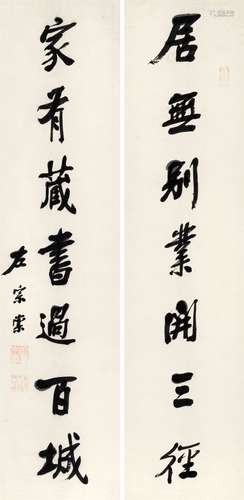 居無别業開三徑
家有藏書過百城
左宗棠